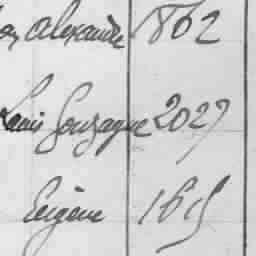 Alexandre 1862
Louis Gonzague 2027
Eugène 1615